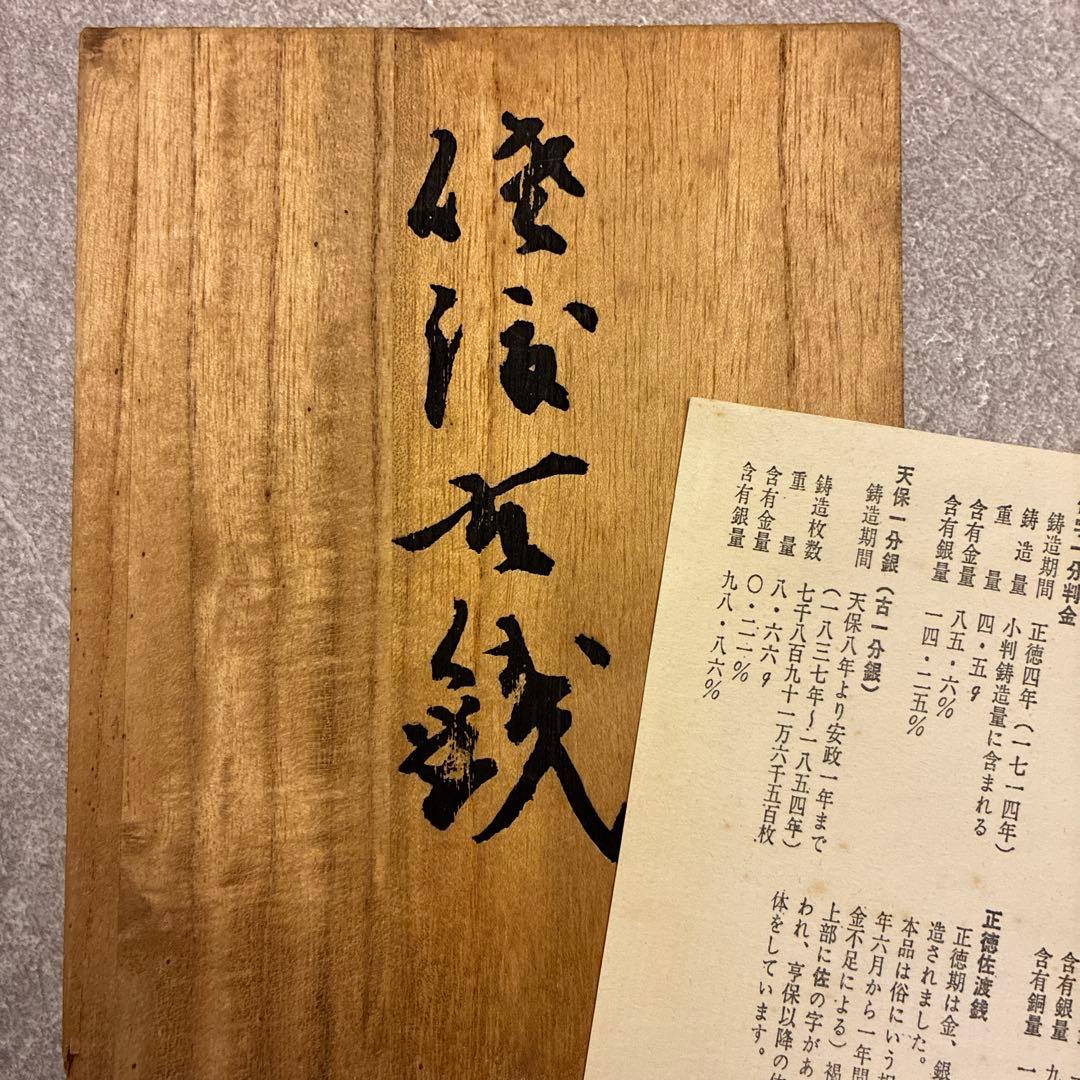 古銭
一分判金
鋳造期間 正徳四年(一七一四年)
鋳造量 小判鋳造量に含まれる
重量 四・五g
含有金量 八五・六%
含有銀量 一四・二五%
天保一分銀(古一分銀)
鋳造期間 天保八年より安政一年まで
(一八三七年〜一八五四年)
鋳造枚数 七千八百九十一万六千五百枚
重量 八・六六g
含有金量 〇・二一%
含有銀量 九八・八六%
含有銀量 九
含有銅量 一
正徳佐渡銭
正徳期は金、銀
造されました。
本品は俗にいう
年六月から一年間
金不足による)褐
上部に佐の字があ
われ、享保以降の
体をしています。